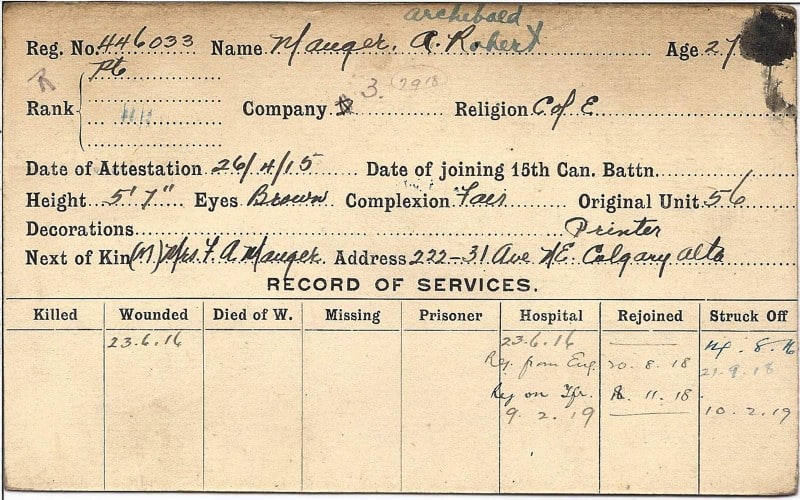 archibald
Reg. No. 446033 Name Mauger. A. Robert Age 27
R Pte
Rank Company 3. (2918 Religion C of E
Date of Attestation 26/4/15 Date of joining 15th Can. Battn.
Height 5' 7" Eyes Brown Complexion Fair Original Unit 56
Decorations Printer
Next of Kin (M) Mrs. F. A. Mauger. Address 222-31 Ave NE Calgary Alta
RECORD OF SERVICES.
Killed Wounded Died of W. Missing Prisoner Hospital Rejoined Struck Off
23.6.16 23.6.16 14.8.16
Rej. from Eng. 20.8.18 21.9.18
Rej on Tfr. 11.18
9.2.19 10.2.19